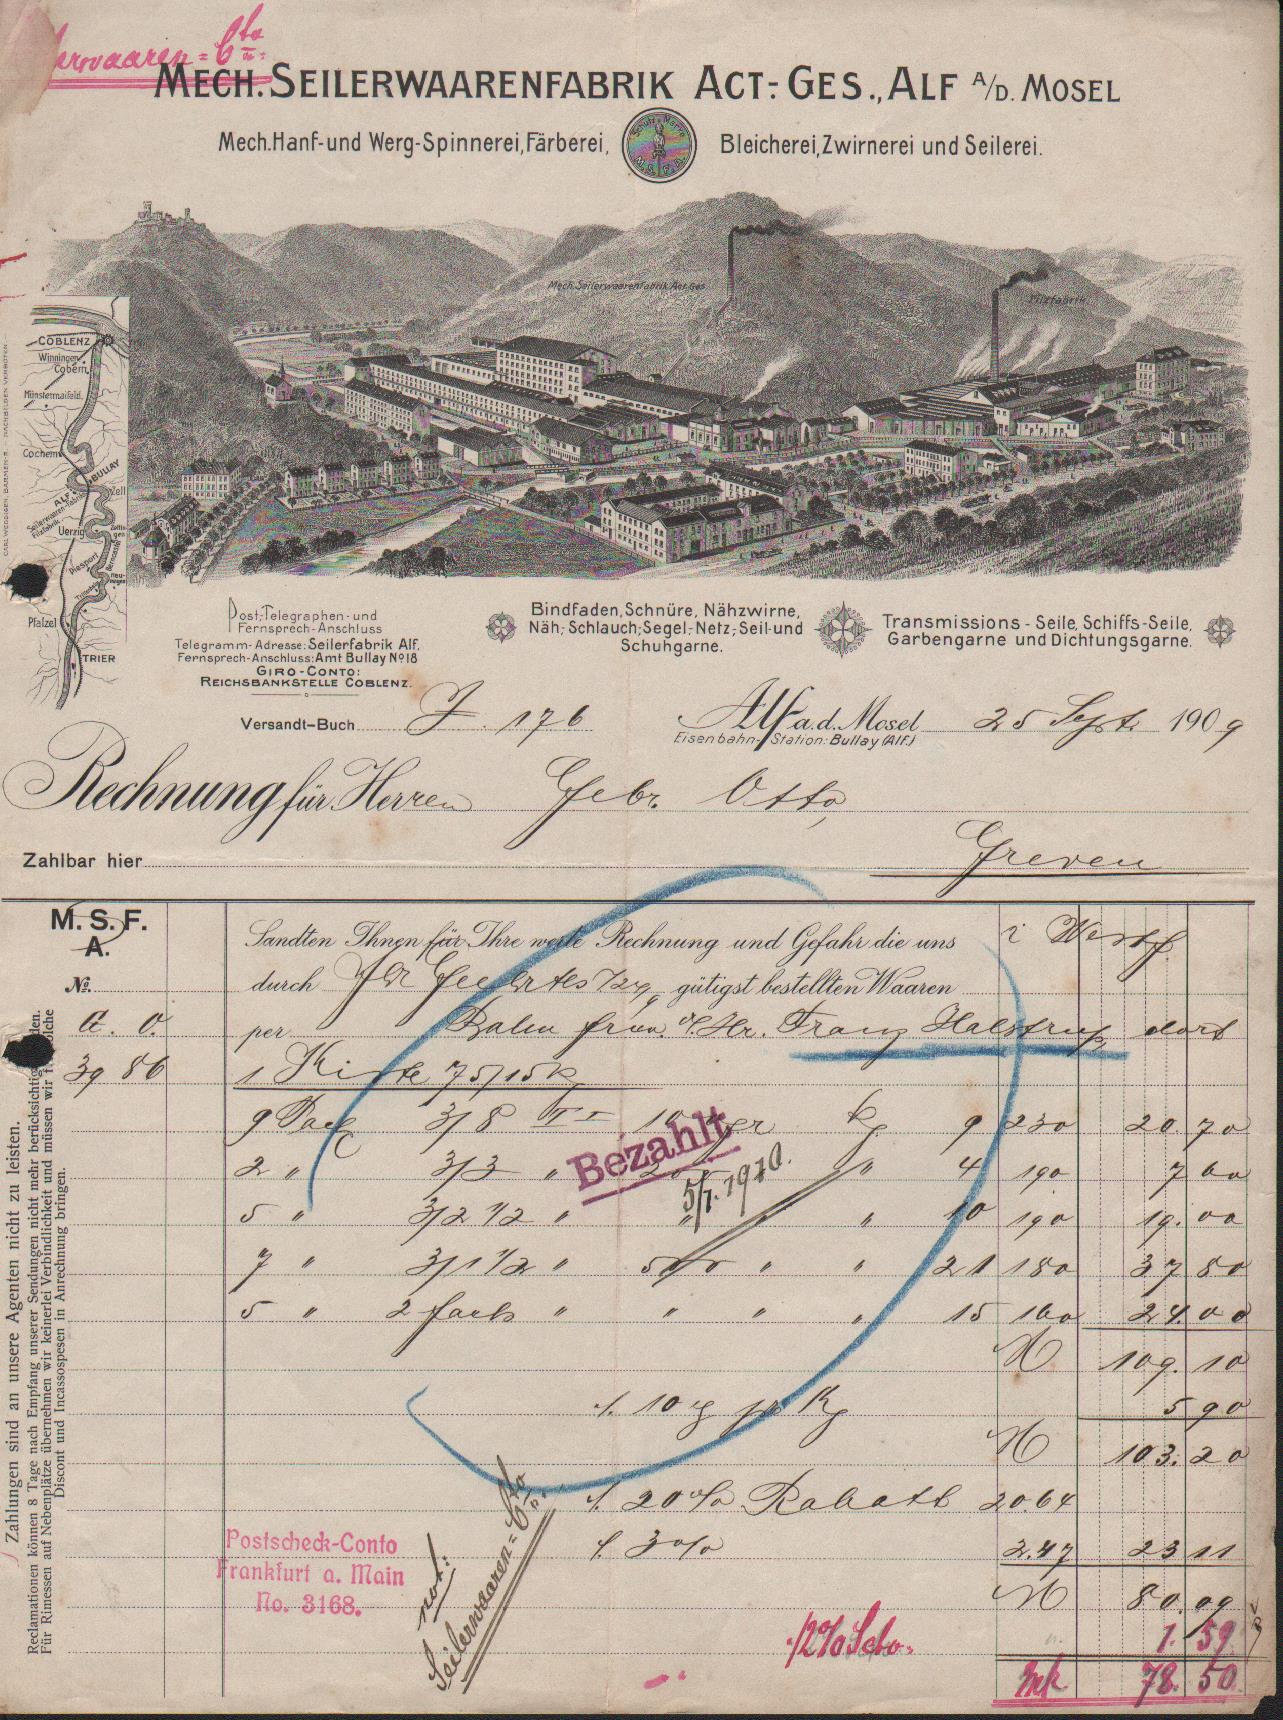 erwaaren = Cto
MECH. SEILERWAARENFABRIK ACT.-GES., ALF A/D. MOSEL
Mech. Hanf- und Werg-Spinnerei, Färberei, Bleicherei, Zwirnerei und Seilerei.
Schutz Marke
M. S. F. A.
Mech. Seilerwaarenfabrik Act. Ges.
Filzfabrik
COBLENZ
Winningen
Cobern
Münstermaifeld
Cochem
BULLAY
ALF
Zell
Uerzig
Piesport
Pfalzel
TRIER
CARL WEDDIGEN, BARMEN-R. NACHBILDEN VERBOTEN
Post-, Telegraphen- und
Fernsprech-Anschluss
Telegramm-Adresse: Seilerfabrik Alf.
Fernsprech-Anschluss: Amt Bullay No 18
GIRO-CONTO:
REICHSBANKSTELLE COBLENZ.
Bindfaden, Schnüre, Nähzwirne,
Näh-, Schlauch-, Segel-, Netz-, Seil- und
Schuhgarne.
Transmissions-Seile, Schiffs-Seile,
Garbengarne und Dichtungsgarne.
Versandt-Buch J. 176
Alf a.d. Mosel 25 Sept. 1909
Eisenbahn-Station: Bullay (Alf.)
Rechnung für Herren Gebr. Otto,
Zahlbar hier Greven
M. S. F.
A.
i Westf.
Sandten Ihnen für Ihre werte Rechnung und Gefahr die uns
No.
durch gütigst bestellten Waaren
G. O. per Bahn frco. Hr. Franz Halstrup, dort
3986 1 Kiste 75/15 k
9 Pack 3/8 II 10 per kg 9 230 20.70
2 " 3/3 " 20 " 4 190 7 60
5 " 3/2 1/2 " " " " 10 190 19.00
7 " 3/1 1/2 " 500 " " 21 180 37 80
5 " 2 fach " " " " 15 160 24.00
M 109.10
./. 10 pr Kg 5 90
M 103.20
./. 20% Rabatt 20.64
./. 3% 2.47 23 11
M 80.09
./. 2% Scto. 1. 59
Mk 78. 50
Bezahlt
5/1. 1910.
Postscheck-Conto
Frankfurt a. Main
No. 3168.
not:
Seilerwaaren = Cto
Zahlungen sind an unsere Agenten nicht zu leisten.
Reclamationen können 8 Tage nach Empfang unserer Sendungen nicht mehr berücksichtigt werden.
Für Rimessen auf Nebenplätze übernehmen wir keinerlei Verbindlichkeit und müssen wir solche
Discont und Incassospesen in Anrechnung bringen.